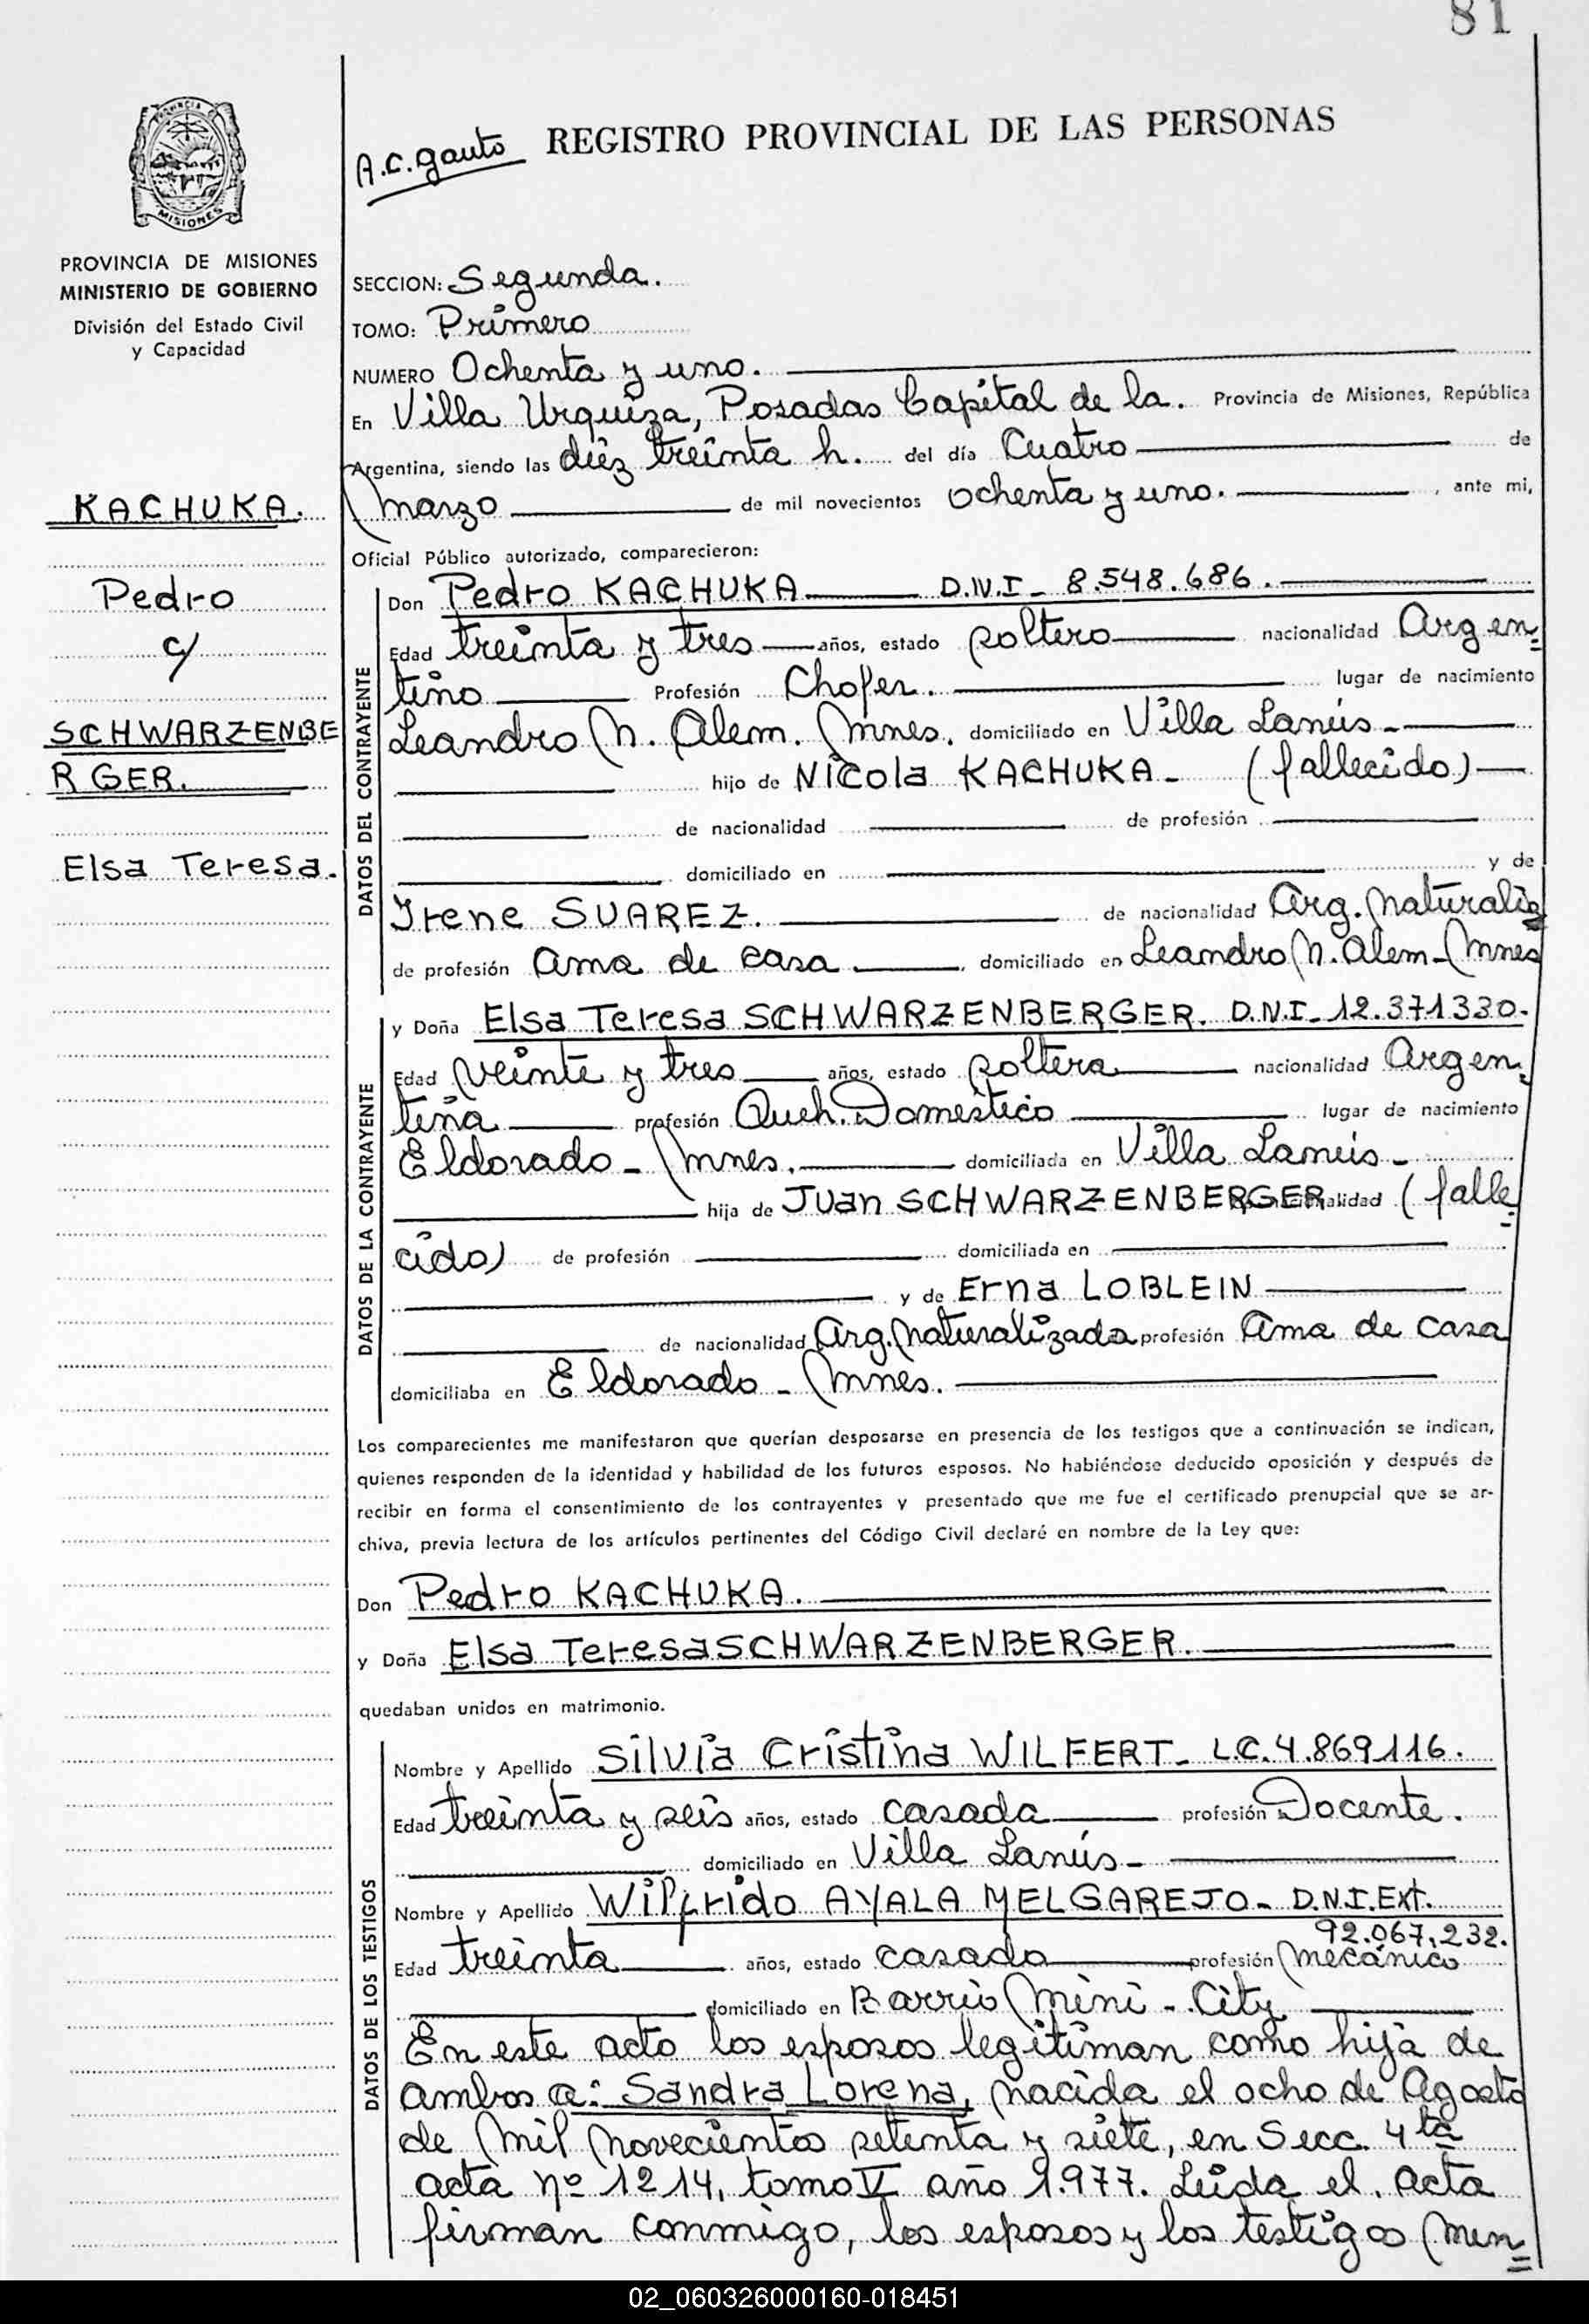 81
PROVINCIA
MISIONES
PROVINCIA DE MISIONES
MINISTERIO DE GOBIERNO
División del Estado Civil
y Capacidad
KACHUKA.
Pedro
c/
SCHWARZENBE
RGER.
Elsa Teresa.
A.C. Gauto
REGISTRO PROVINCIAL DE LAS PERSONAS
SECCION: Segunda.
TOMO: Primero
NUMERO Ochenta y uno.
En Villa Urquiza, Posadas Capital de la. Provincia de Misiones, República
Argentina, siendo las diez treinta h. del día Cuatro de
Marzo de mil novecientos ochenta y uno. , ante mi,
Oficial Público autorizado, comparecieron:
DATOS DEL CONTRAYENTE
Don Pedro KACHUKA D.N.I- 8.548.686.
Edad treinta y tres años, estado soltero nacionalidad Argen=
tino Profesión Chofer. lugar de nacimiento
Leandro N. Alem. Mnes. domiciliado en Villa Lanús-
hijo de Nicola KACHUKA- (fallecido)
de nacionalidad de profesión
domiciliado en y de
Irene SUAREZ. de nacionalidad Arg. Naturaliz
de profesión Ama de casa domiciliado en Leandro N. Alem-Mnes
DATOS DE LA CONTRAYENTE
y Doña Elsa Teresa SCHWARZENBERGER. D.N.I- 12.371330.
Edad Veinte y tres años, estado soltera nacionalidad Argen=
tina profesión Queh. Domestico lugar de nacimiento
Eldorado- Mnes. domiciliada en Villa Lanús-
hija de Juan SCHWARZENBERGER nacionalidad (falle=
cido) de profesión domiciliada en
y de Erna LOBLEIN
de nacionalidad Arg. Naturalizada profesión Ama de casa
domiciliaba en Eldorado- Mnes.
Los comparecientes me manifestaron que querían desposarse en presencia de los testigos que a continuación se indican,
quienes responden de la identidad y habilidad de los futuros esposos. No habiéndose deducido oposición y después de
recibir en forma el consentimiento de los contrayentes y presentado que me fue el certificado prenupcial que se ar-
chiva, previa lectura de los artículos pertinentes del Código Civil declaré en nombre de la Ley que:
Don Pedro KACHUKA.
y Doña Elsa Teresa SCHWARZENBERGER.
quedaban unidos en matrimonio.
DATOS DE LOS TESTIGOS
Nombre y Apellido Silvia Cristina WILFERT- L.C. 4.869116.
Edad treinta y seis años, estado casada profesión Docente.
domiciliado en Villa Lanús-
Nombre y Apellido Wilfrido AYALA MELGAREJO- D.N.I. Ext.
92.067.232.
Edad treinta años, estado casado profesión Mecánico
domiciliado en Barrio Mini-City
En este acto los esposos legitiman como hija de
ambos a: Sandra Lorena, nacida el ocho de Agosto
de Mil Novecientos setenta y siete, en Secc. 4ta
acta Nº 1214, tomo V año 1.977. Leída el. Acta
firman conmigo, los esposos y los testigos Men=
02_060326000160-018451